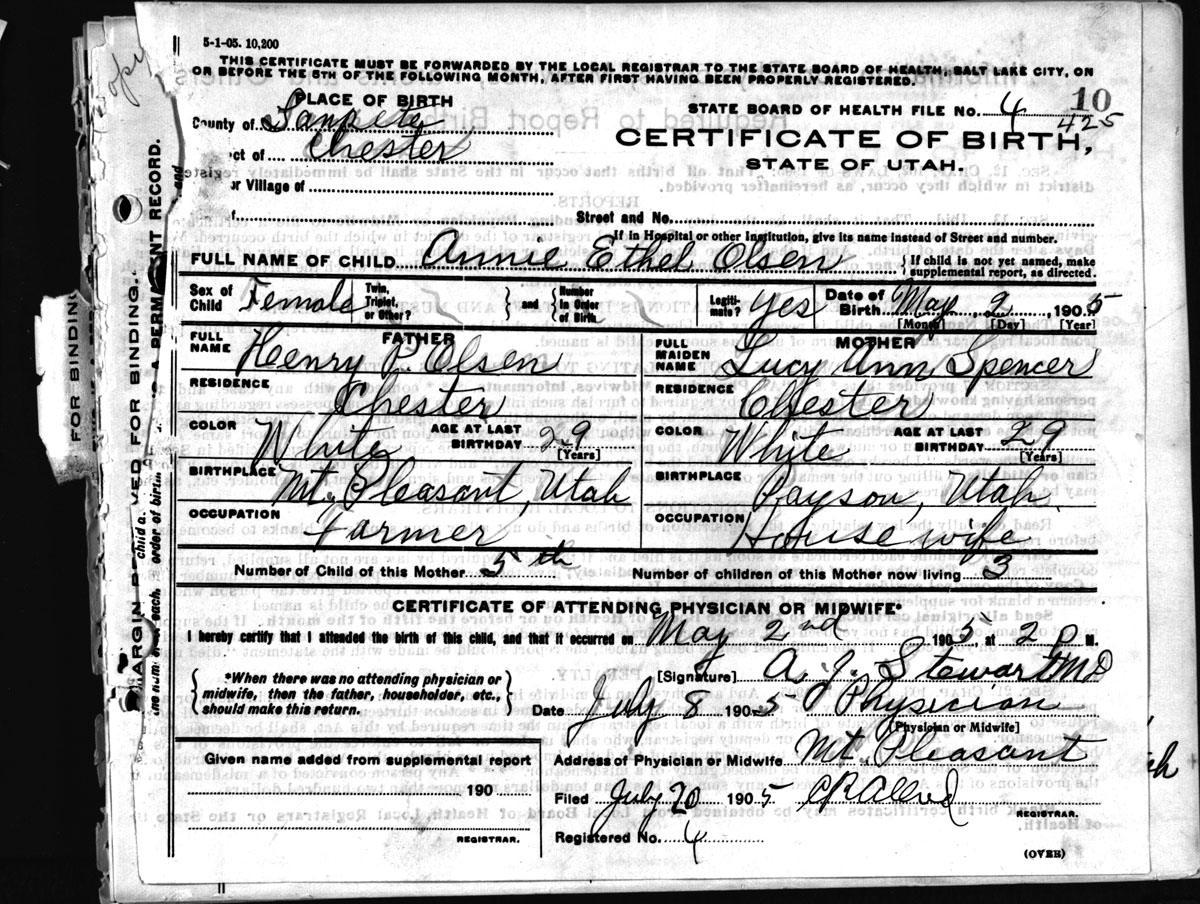 5-1-05. 10,200
THIS CERTIFICATE MUST BE FORWARDED BY THE LOCAL REGISTRAR TO THE STATE BOARD OF HEALTH, SALT LAKE CITY, ON
OR BEFORE THE 5TH OF THE FOLLOWING MONTH, AFTER FIRST HAVING BEEN PROPERLY REGISTERED.
PLACE OF BIRTH
STATE BOARD OF HEALTH FILE No. 4 10
425
County of Sanpete
CERTIFICATE OF BIRTH,
ct of Chester
STATE OF UTAH.
or Village of
Street and No.
If in Hospital or other Institution, give its name instead of Street and number.
FULL NAME OF CHILD Annie Ethel Olsen { If child is not yet named, make
supplemental report, as directed.
Sex of Child Female Twin, Triplet, or Other? and Number in Order of Birth Legitimate? yes Date of Birth May 2 1905
[Month] [Day] [Year]
FATHER
FULL NAME Henry P. Olsen
RESIDENCE Chester
COLOR White AGE AT LAST BIRTHDAY 29 [Years]
BIRTHPLACE Mt. Pleasant, Utah
OCCUPATION Farmer
MOTHER
FULL MAIDEN NAME Lucy Ann Spencer
RESIDENCE Chester
COLOR White AGE AT LAST BIRTHDAY 29 [Years]
BIRTHPLACE Payson, Utah.
OCCUPATION House wife
Number of Child of this Mother 5th Number of children of this Mother now living 3
CERTIFICATE OF ATTENDING PHYSICIAN OR MIDWIFE*
I hereby certify that I attended the birth of this child, and that it occurred on May 2nd 1905 at 2 P. M.
*When there was no attending physician or
midwife, then the father, householder, etc.,
should make this return.
[Signature] A. J. Stewart MD
Date July 8 1905 Physician
[Physician or Midwife]
Given name added from supplemental report
190
REGISTRAR.
Address of Physician or Midwife Mt. Pleasant
Filed July 20 1905
REGISTRAR.
Registered No. 4
(OVER)
MARGIN RESERVED FOR BINDING.
FOR BINDING
A PERMANENT RECORD.